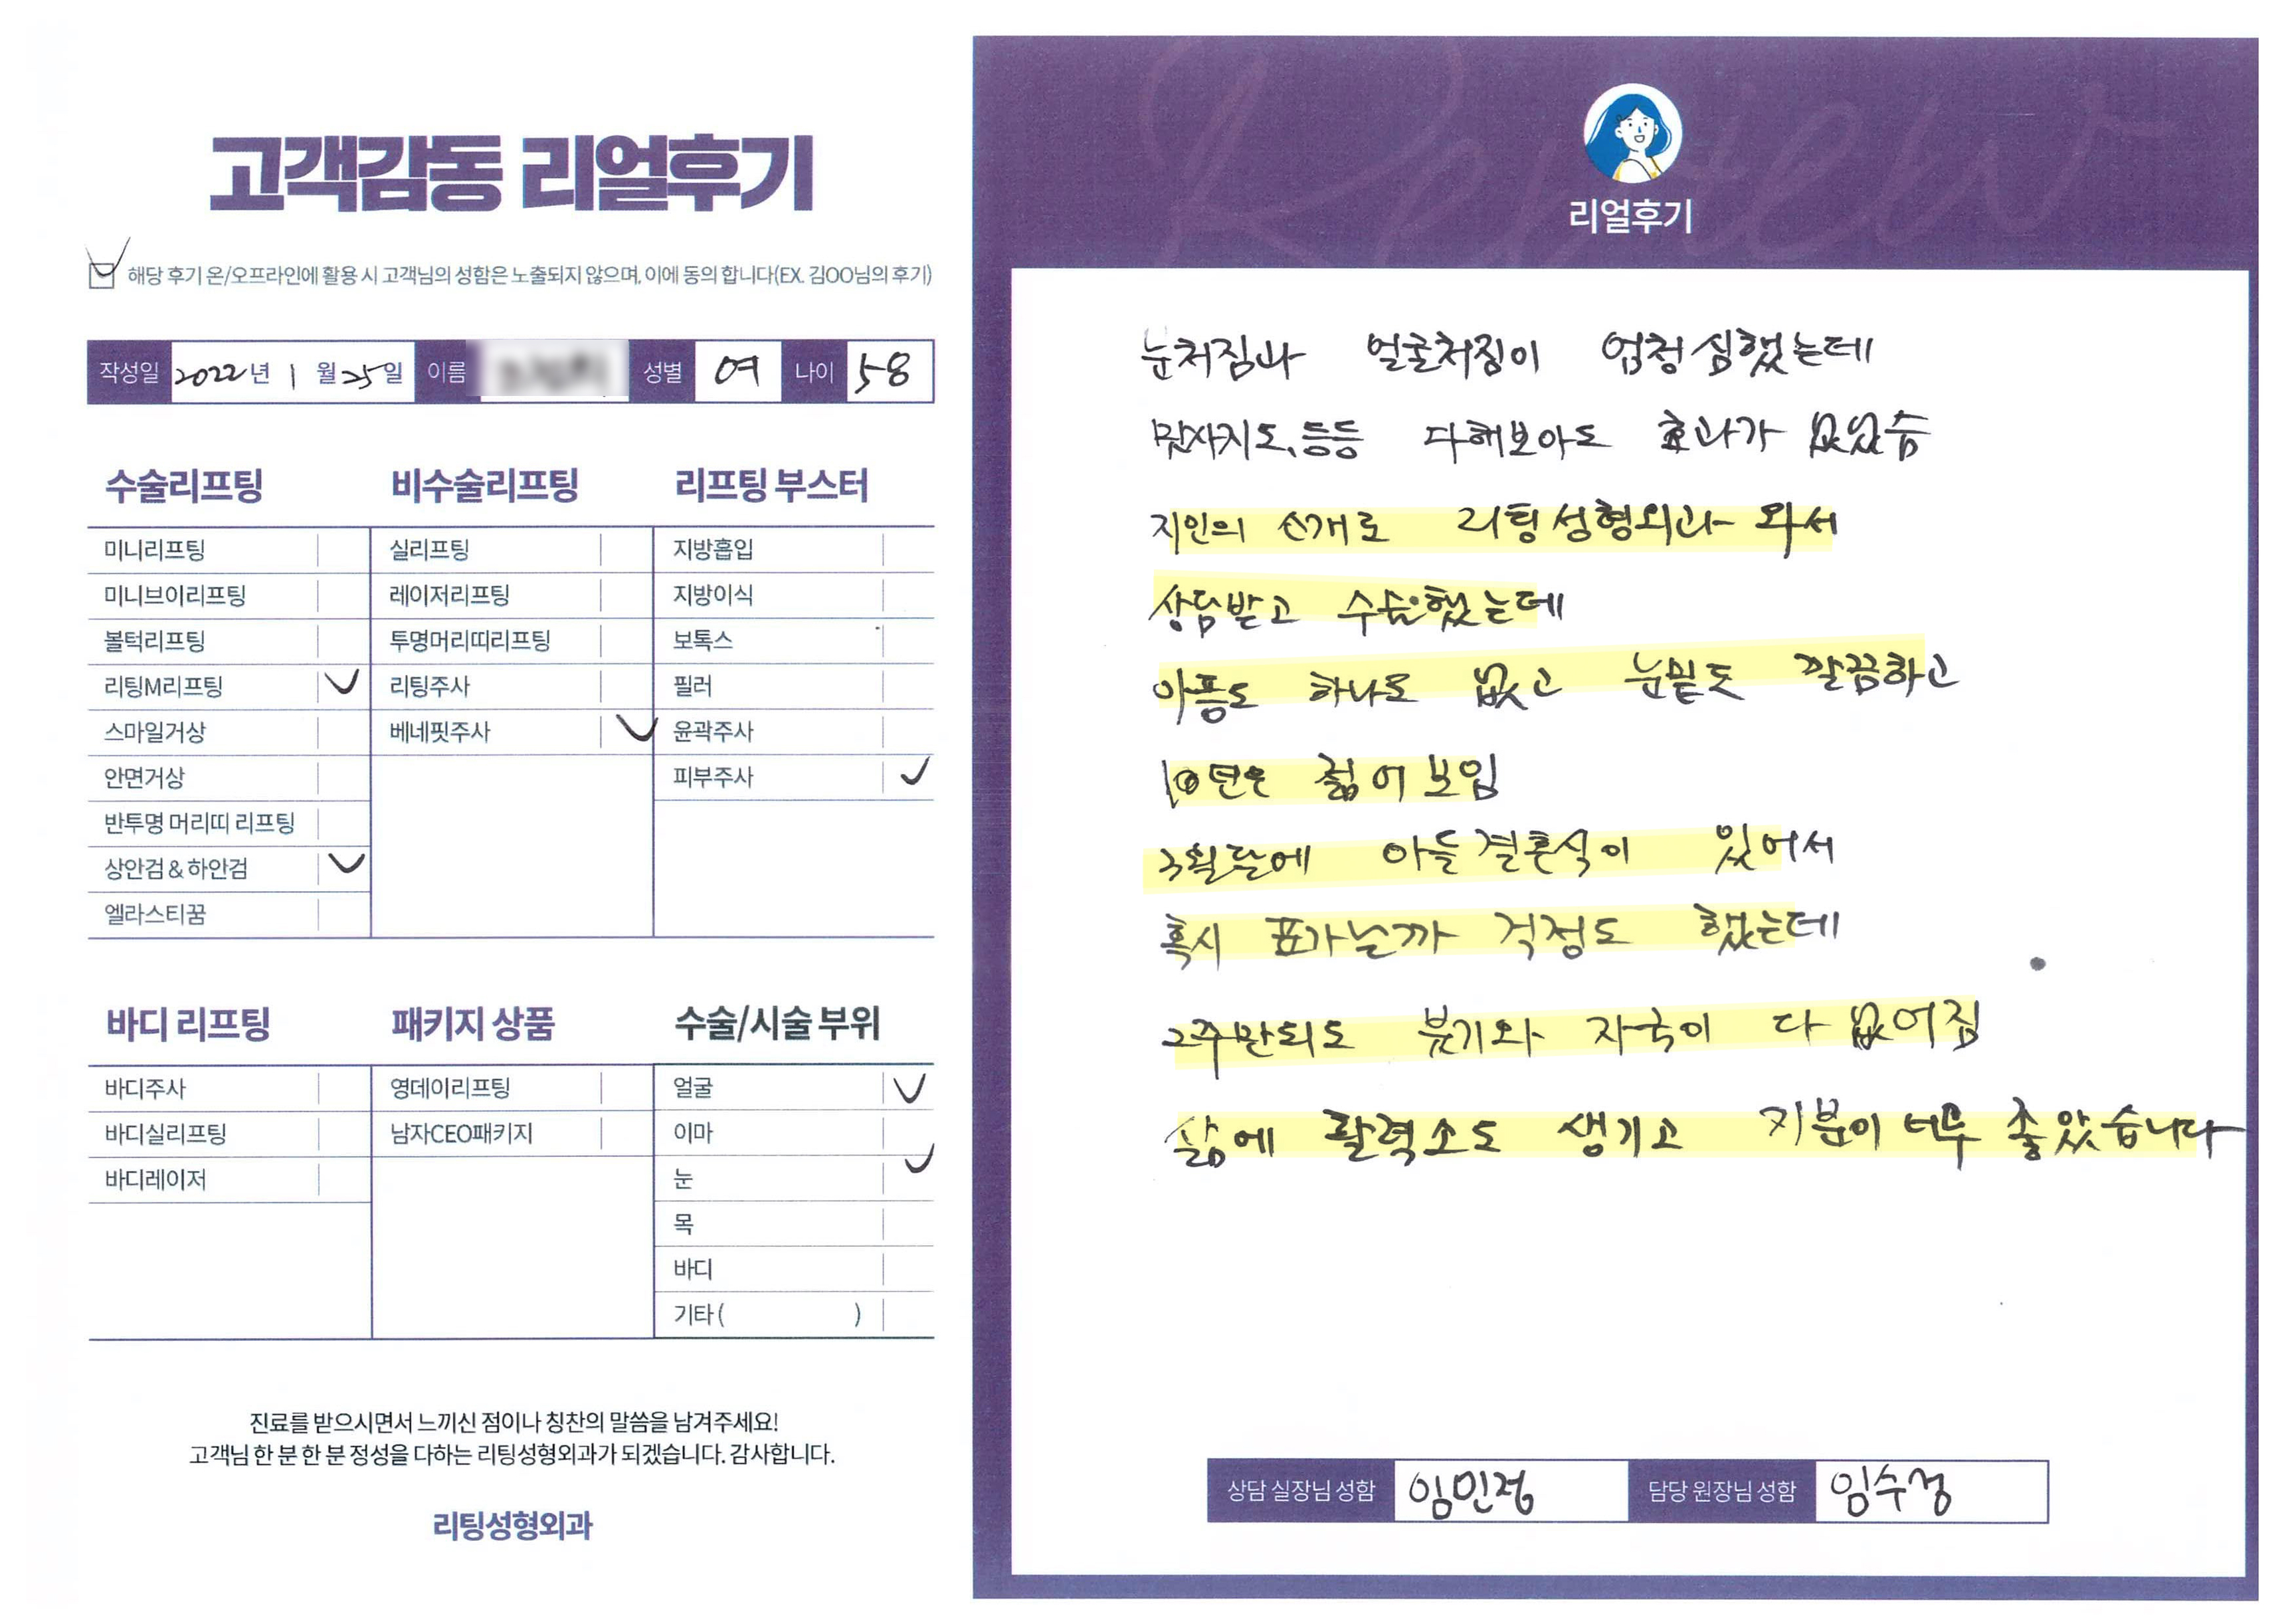 고객감동 리얼후기
해당 후기 온/오프라인에 활용 시 고객님의 성함은 노출되지 않으며, 이에 동의 합니다(EX. 김OO님의 후기)
작성일 2022년 1월 25일 이름 성별 여 나이 58
수술리프팅
미니리프팅
미니브이리프팅
볼턱리프팅
리팅M리프팅
스마일거상
안면거상
반투명 머리띠 리프팅
상안검 & 하안검
엘라스티꿈
비수술리프팅
실리프팅
레이저리프팅
투명머리띠리프팅
리팅주사
베네핏주사
리프팅 부스터
지방흡입
지방이식
보톡스
필러
윤곽주사
피부주사
바디 리프팅
바디주사
바디실리프팅
바디레이저
패키지 상품
영데이리프팅
남자CEO패키지
수술/시술 부위
얼굴
이마
눈
목
바디
기타 ( )
진료를 받으시면서 느끼신 점이나 칭찬의 말씀을 남겨주세요!
고객님 한 분 한 분 정성을 다하는 리팅성형외과가 되겠습니다. 감사합니다.
리팅성형외과
Review
리얼후기
눈처짐과 얼굴처짐이 엄청 심했는데
맛사지도, 등등 다해보아도 효과가 없었슴
지인의 소개로 리팅성형외과 와서
상담받고 수술했는데
아픔도 하나도 없고 눈밑도 깔끔하고
10년은 젊어보임
3월달에 아들결혼식이 있어서
혹시 표가날까 걱정도 했는데
2주만되도 붓기와 자국이 다 없어짐
삶에 활력소도 생기고 기분이 너무 좋았습니다
상담 실장님 성함 임민정 담당 원장님 성함 임수정